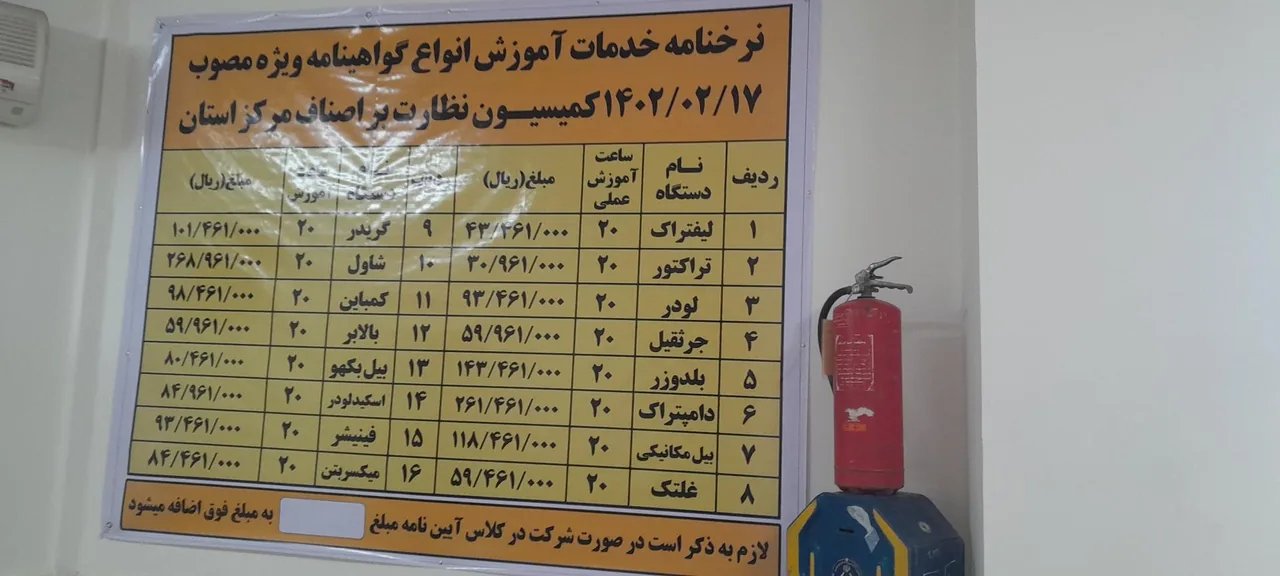 نرخنامه خدمات آموزش انواع گواهینامه ویژه مصوب
۱۴۰۲/۰۲/۱۷ کمیسیون نظارت بر اصناف مرکز استان
ردیف نام دستگاه ساعت آموزش عملی مبلغ(ریال) ردیف نام دستگاه ساعت آموزش مبلغ(ریال)
۱ لیفتراک ۲۰ ۴۳/۴۶۱/۰۰۰ ۹ گریدر ۲۰ ۱۰۱/۴۶۱/۰۰۰
۲ تراکتور ۲۰ ۳۰/۹۶۱/۰۰۰ ۱۰ شاول ۲۰ ۲۶۸/۹۶۱/۰۰۰
۳ لودر ۲۰ ۹۳/۴۶۱/۰۰۰ ۱۱ کمباین ۲۰ ۹۸/۴۶۱/۰۰۰
۴ جرثقیل ۲۰ ۵۹/۹۶۱/۰۰۰ ۱۲ بالابر ۲۰ ۵۹/۹۶۱/۰۰۰
۵ بلدوزر ۲۰ ۱۴۳/۴۶۱/۰۰۰ ۱۳ بیل بکهو ۲۰ ۸۰/۴۶۱/۰۰۰
۶ دامپتراک ۲۰ ۲۶۱/۴۶۱/۰۰۰ ۱۴ اسکیدلودر ۲۰ ۸۴/۹۶۱/۰۰۰
۷ بیل مکانیکی ۲۰ ۱۱۸/۴۶۱/۰۰۰ ۱۵ فینیشر ۲۰ ۹۳/۴۶۱/۰۰۰
۸ غلتک ۲۰ ۵۹/۴۶۱/۰۰۰ ۱۶ میکسربتن ۲۰ ۸۴/۴۶۱/۰۰۰
لازم به ذکر است در صورت شرکت در کلاس آیین نامه مبلغ به مبلغ فوق اضافه میشود